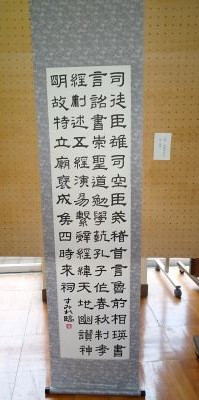 司徒臣雄司空臣戒稽首言魯前相瑛書
言詔書崇聖道勉學藝孔子作春秋制孝
經刪述五經演易繫辭經緯天地幽讚神
明故特立廟褒成侯四時來祠 臨